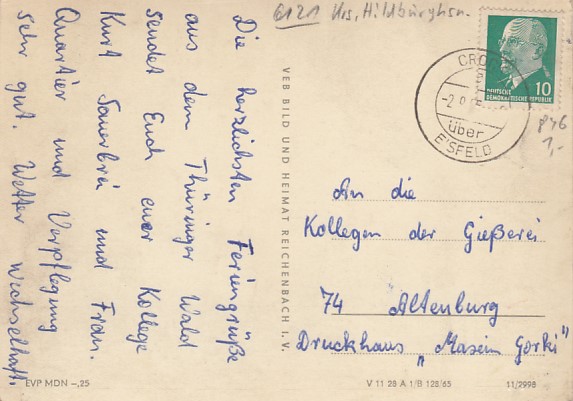 6121 Krs. Hildburghsn.
Die herzlichsten Feriengrüße
aus dem Thüringer Wald
sendet Euch euer Kollege
Kurt Sauerbrei und Frau.
Quartier und Verpflegung
sehr gut. Wetter wechselhaft.
VEB BILD UND HEIMAT REICHENBACH I. V.
DEUTSCHE
DEMOKRATISCHE REPUBLIK
10
CROCK
über
EISFELD
1,-
An die
Kollegen der Gießerei
74 Altenburg
Druckhaus „Maxim Gorki"
EVP MDN -,25
V 11 28 A 1/B 128/65
11/2998